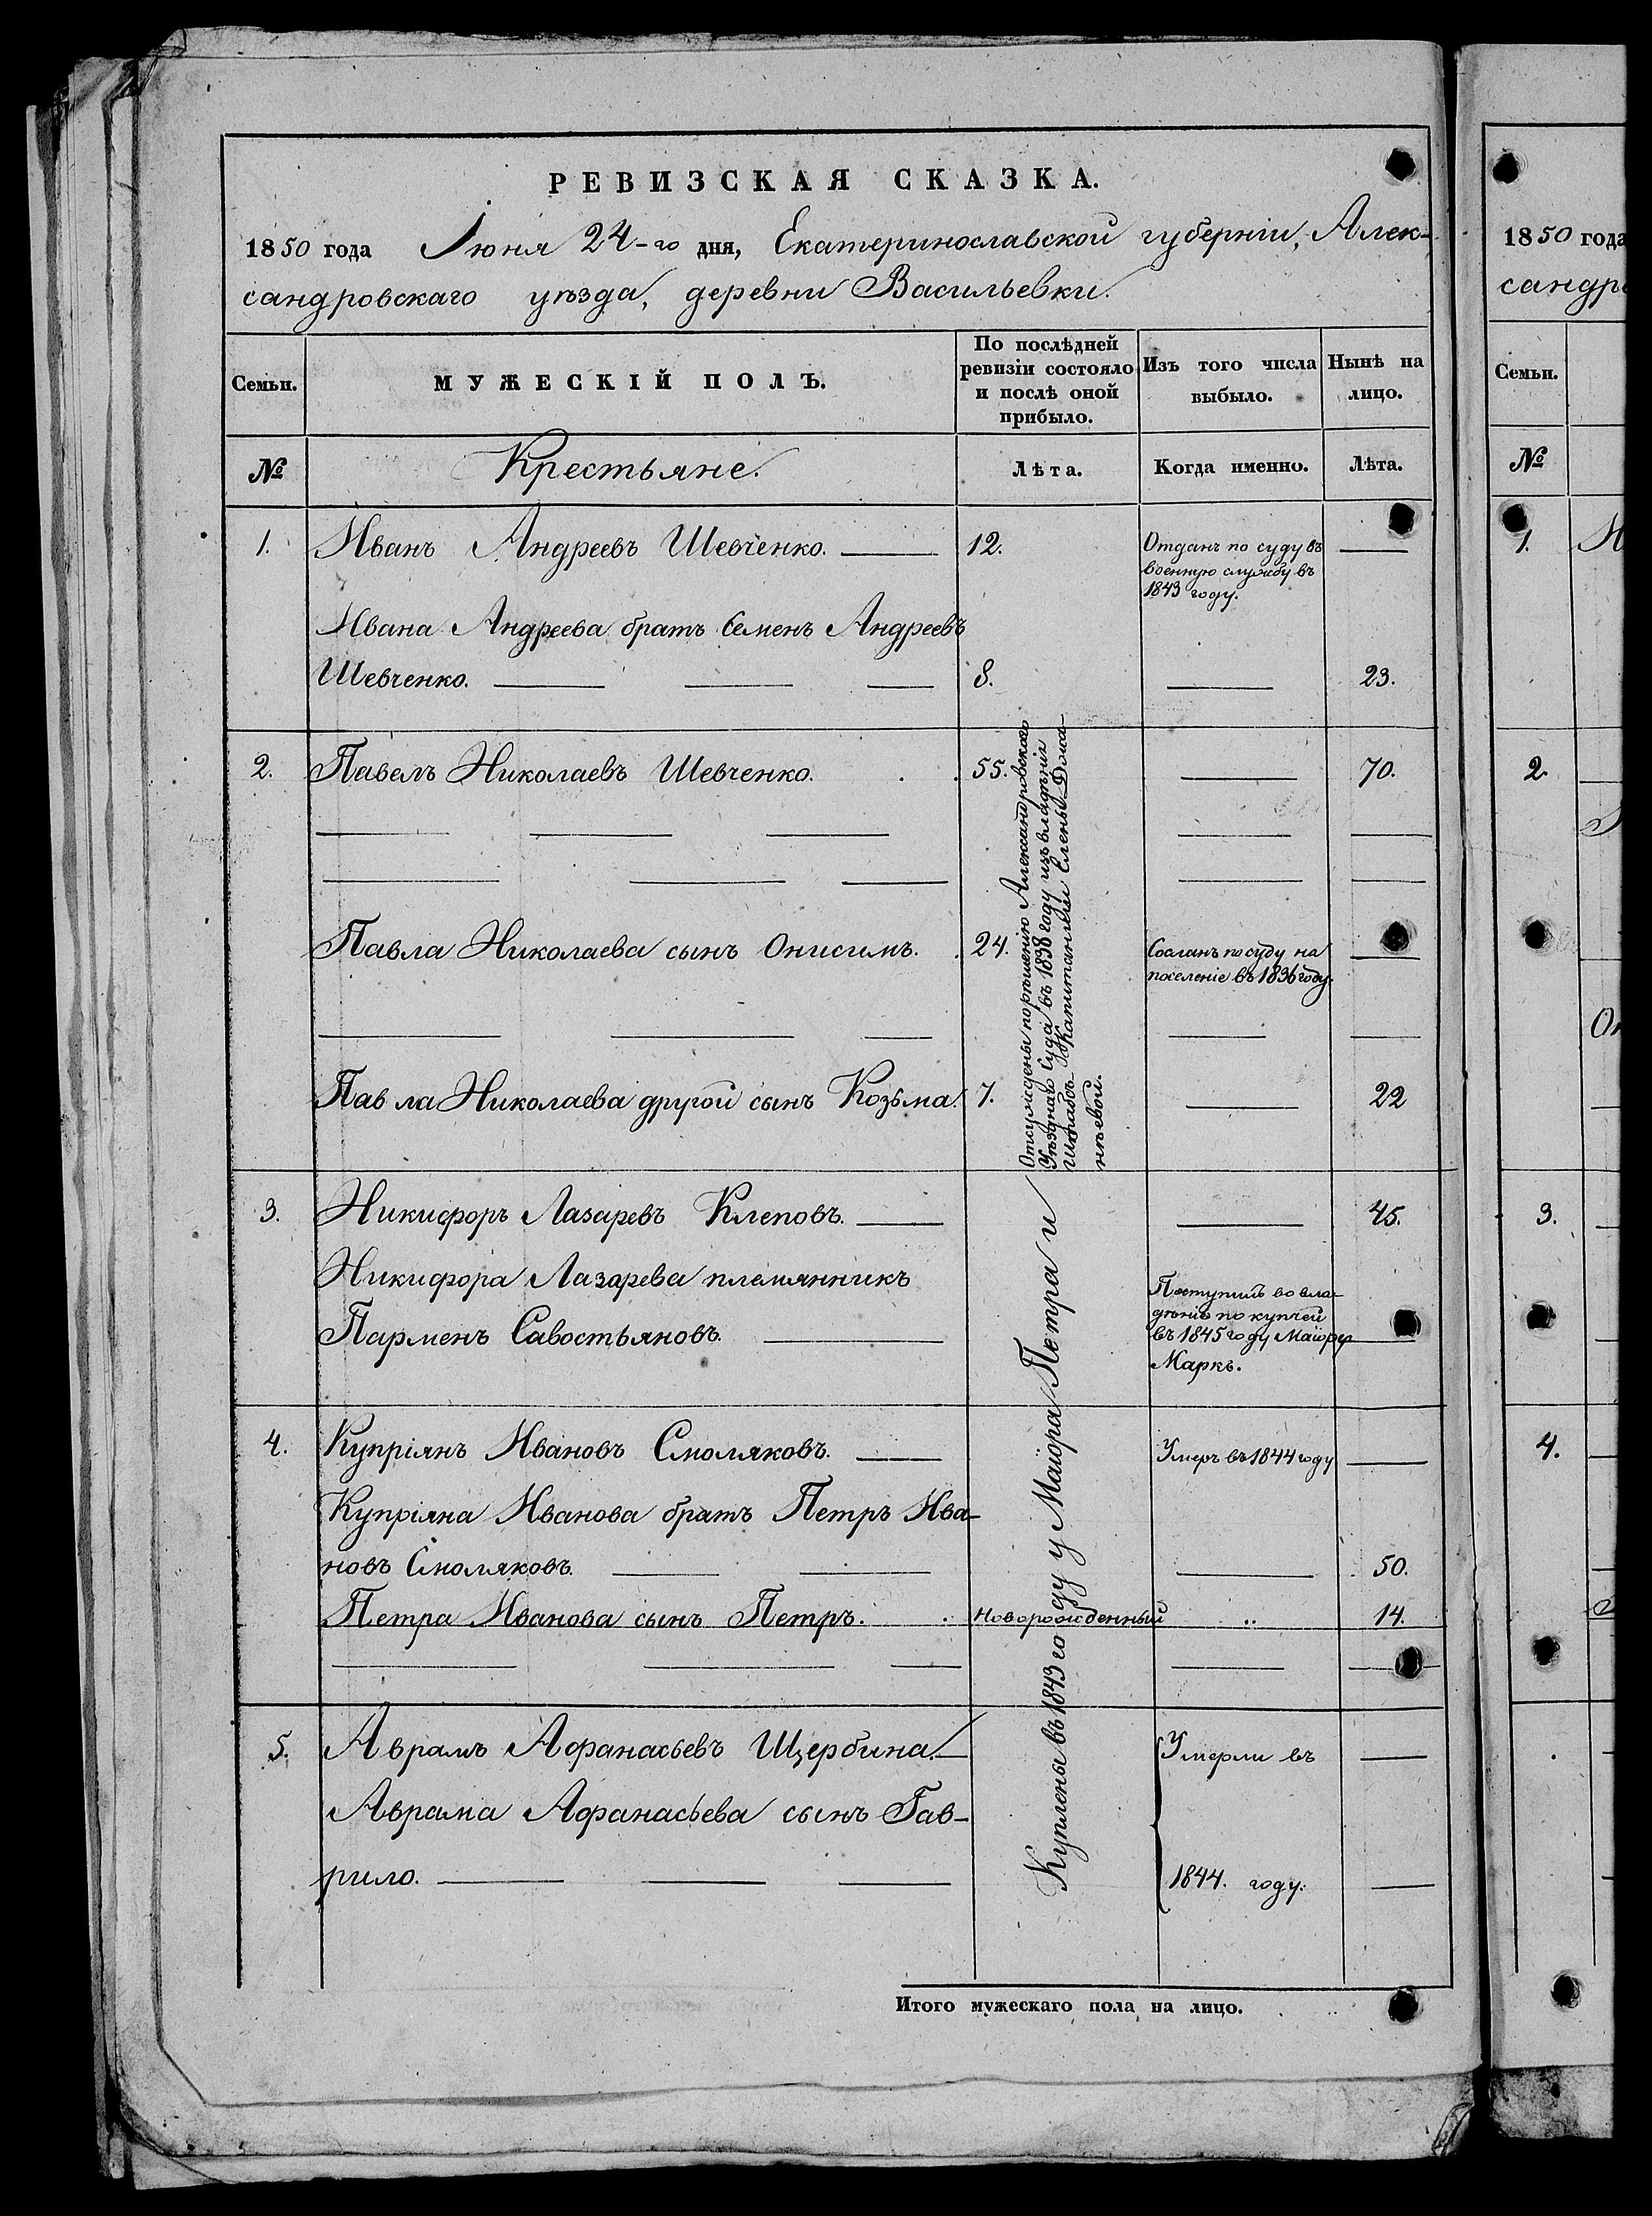 РЕВИЗСКАЯ СКАЗКА.
1850 года Іюня 24-го дня, Екатеринославской губерніи, Алек-
сандровскаго уѣзда, деревни Васильевки.
Семьи.
МУЖЕСКІЙ ПОЛЪ.
По послѣдней
ревизіи состояло
и послѣ оной
прибыло.
Изъ того числа
выбыло.
Нынѣ на
лицо.
№
Крестьяне.
Лѣта.
Когда именно.
Лѣта.
1. Иванъ Андреевъ Шевченко. 12.
Отданъ по суду въ
военную службу въ
1843 году.
Ивана Андреева братъ Семенъ Андреевъ
Шевченко. 8. 23.
2. Павелъ Николаевъ Шевченко. 55. 70.
Павла Николаева сынъ Онисимъ. 24.
Сосланъ по суду на
поселеніе въ 1836 году.
Павла Николаева другой сынъ Козьма. 7. 22
Отсуждены по рѣшенію Александровскаго
Уѣзднаго Суда въ 1838 году изъ владѣнія
Штабсъ-Капитанши Елены Дома-
нѣевой.
3. Никифоръ Лазаревъ Клеповъ. 45.
Никифора Лазарева племянникъ
Парменъ Савостьяновъ.
Поступилъ во вла-
дѣніе по купчей
въ 1845 году Маіору
Маркъ.
4. Купріянъ Ивановъ Смоляковъ.
Умеръ въ 1844 году
Купріяна Иванова братъ Петръ Ива-
новъ Смоляковъ. 50.
Петра Иванова сынъ Петръ. Новорожденный 14.
5. Аврамъ Афанасьевъ Щербина.
Умерли въ
Аврама Афанасьева сынъ Гав-
рило.
1844. году.
Куплены въ 1843 году у Маіора Петра и
Итого мужескаго пола на лицо.
1850 года
сандро
Семьи.
№
1. И
2.
Он
3.
4.